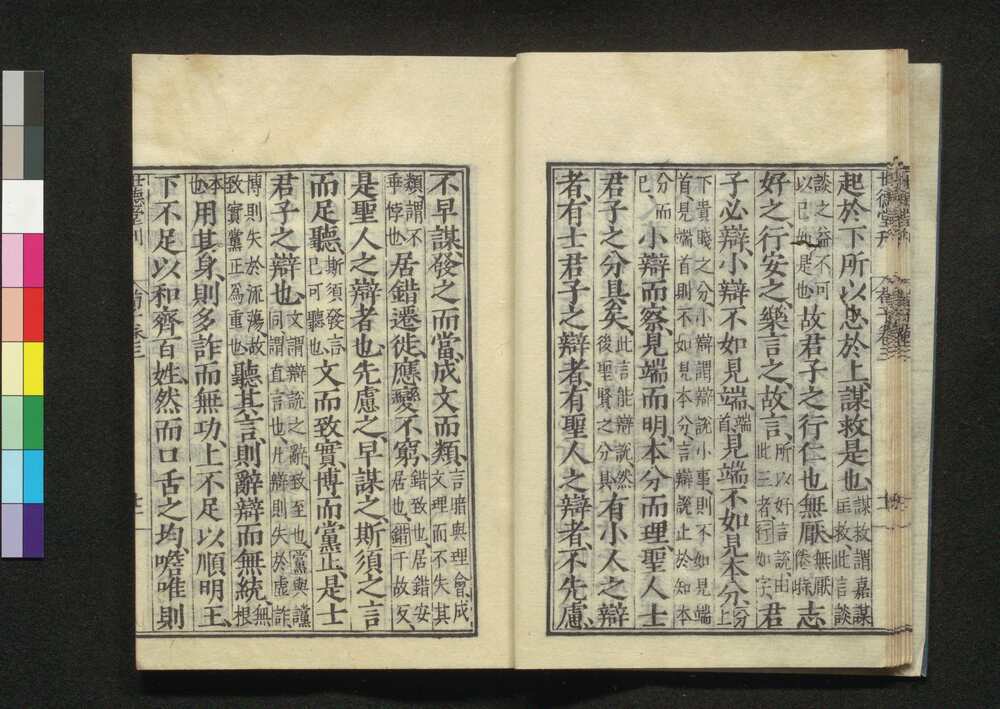 世德堂刊 荀子卷三
起於下所以忠於上謀救是也謀救謂嘉謀匡救此言談
談之益不可以已如是也故君子之行仁也無厭無厭倦時志
好之行安之樂言之故言所以好言說由此三者行如字君
子必辯小辯不如見端端首見端不如見本分分
下貴賤之分小辯謂辯說小事則不如見端首見端首則不如見本分言辯說止於知本
分而已小辯而察見端而明本分而理聖人士
君子之分具矣此言能辯說然後聖賢之分具有小人之辯
者有士君子之辯者有聖人之辯者不先慮
不早謀發之而當成文而類言暗與理會成文理而不失其
類謂不乖悖也居錯遷徙應變不窮錯致也居錯安居也錯千故反
是聖人之辯者也先慮之早謀之斯須之言
而足聽斯須發言已可聽也文而致實博而黨正是士
君子之辯也文謂辯說之辭致至也黨與讜同謂直言也凡辯則失於虛詐
博則失於流蕩故致實黨正為重也聽其言則辭辯而無統無根
本也用其身則多詐而無功上不足以順明王
下不足以和齊百姓然而口舌之均噡唯則
世德堂刊 荀子卷三 十一